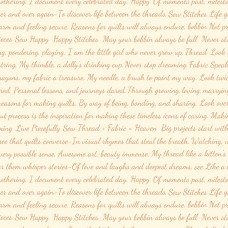 othering. I document every celebrated day. Happy. Of moments past, milest
er and over again-To discover life between the threads. Sew Stitches. Life g
orm and feeling secure. Reasons for quilts will always endure. bobbin Not p
ieces Sew Happy. Happy Stitches. May your bobbin always be full. Never st
y, pondering, playing. I am the little girl who never grew up. Thread. Look
tring. My thimble, a dolly's drinking cup. Never stop dreaming Fabric Speak
rayons, my fabric a treasure. My needle, a brush to paint my way. Look twic
red. Personal lessons and journeys dared. Through growing, loving, marryin
reasons for making quilts. By way of being, bonding, and sharing. Look over
ul process is the inspiration for making these timeless icons of caring. Makin
ning. Live Peacefully Sew Thread + Fabric = Heaven. Big projects start with
ee that quilts converse-In visual rhymes that steal the breath. Watching, w
very possible sense. Awesome art, beauty immense. My thread like a kitten's
r them whisper stories-Of love and laughs and deepest dreams. sew Like a s
othering. I document every celebrated day. Happy. Of moments past, milest
er and over again-To discover life between the threads. Sew Stitches. Life g
orm and feeling secure. Reasons for quilts will always endure. bobbin Not p
ieces Sew Happy. Happy Stitches. May your bobbin always be full. Never st